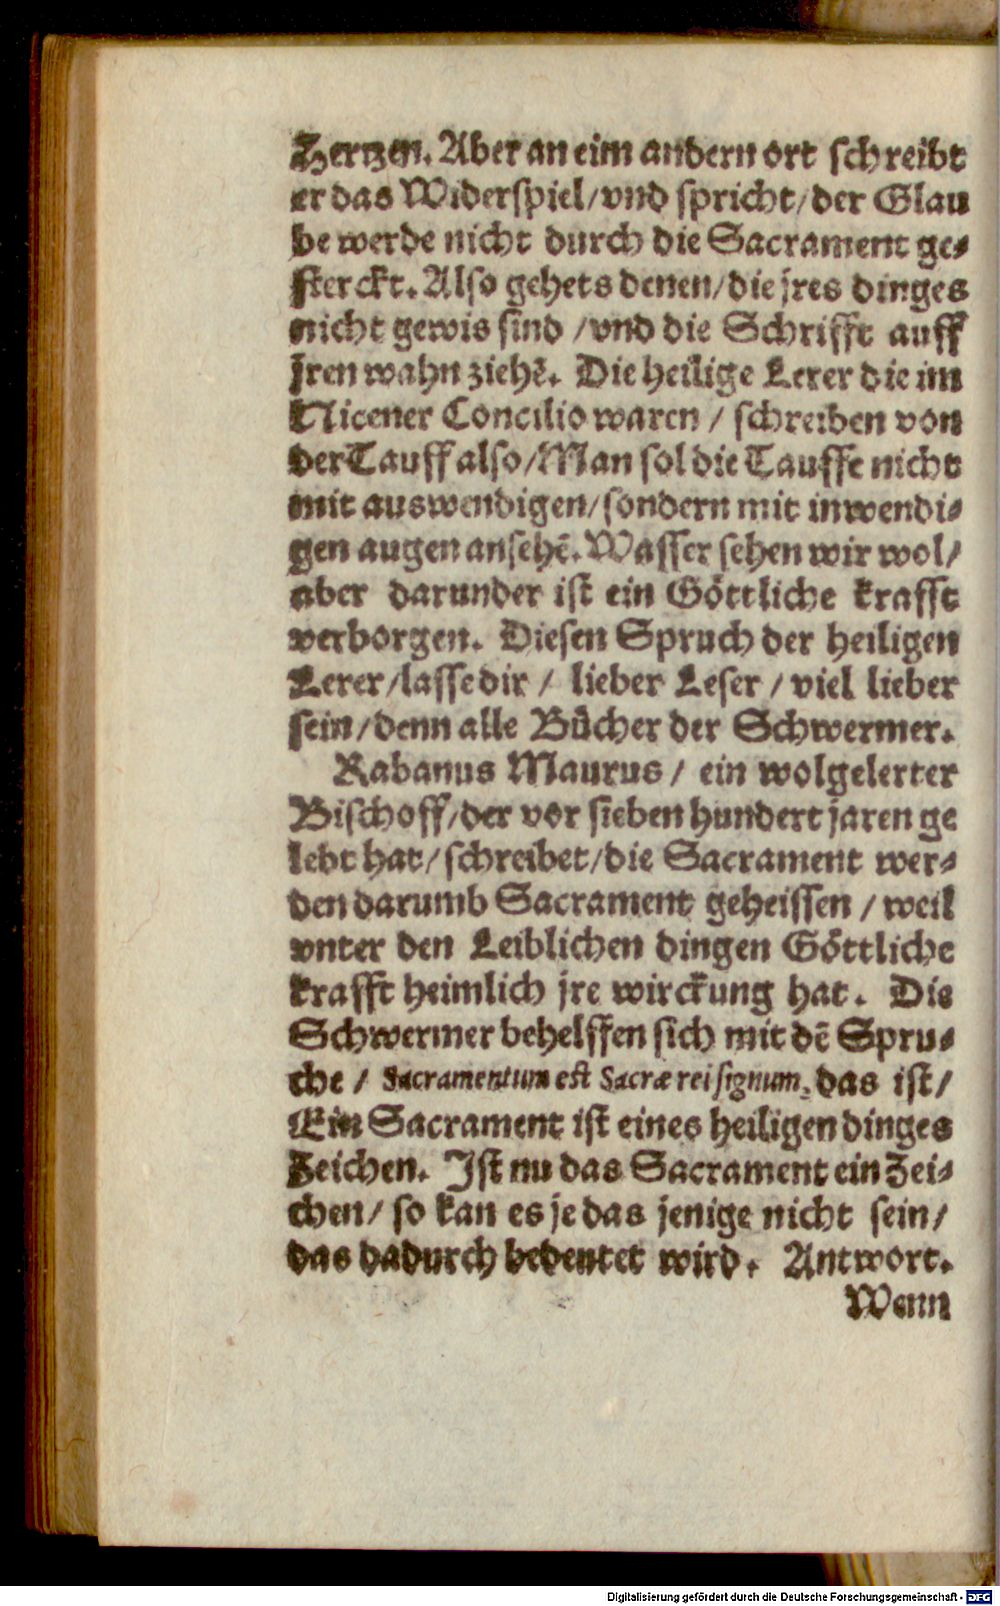 Hertzen. Aber an eim andern ort schreibt
er das Widerspiel/vnd spricht/der Glau
be werde nicht durch die Sacrament ge-
sterckt. Also gehets denen/die jres dinges
nicht gewis sind /vnd die Schrifft auff
jren wahn ziehē. Die heilige Lerer die im
Nicener Concilio waren / schreiben von
der Tauff also/Man sol die Tauffe nicht
mit auswendigen/sondern mit inwendi-
gen augen ansehē. Wasser sehen wir wol/
aber darunder ist ein Göttliche krafft
verborgen. Diesen Spruch der heiligen
Lerer/lasse dir / lieber Leser / viel lieber
sein/denn alle Bücher der Schwermer.
Rabanus Maurus / ein wolgelerter
Bischoff/der vor sieben hundert jaren ge
lebt hat/schreibet/die Sacrament wer-
den darumb Sacrament geheissen / weil
vnter den Leiblichen dingen Göttliche
krafft heimlich jre wirckung hat. Die
Schwermer behelffen sich mit dē Spru-
che / Sacramentum est Sacræ rei signum, das ist/
Ein Sacrament ist eines heiligen dinges
Zeichen. Ist nu das Sacrament ein Zei-
chen/ so kan es je das jenige nicht sein/
das dadurch bedeutet wird. Antwort.
Wenn
Digitalisierung gefördert durch die Deutsche Forschungsgemeinschaft - DFG